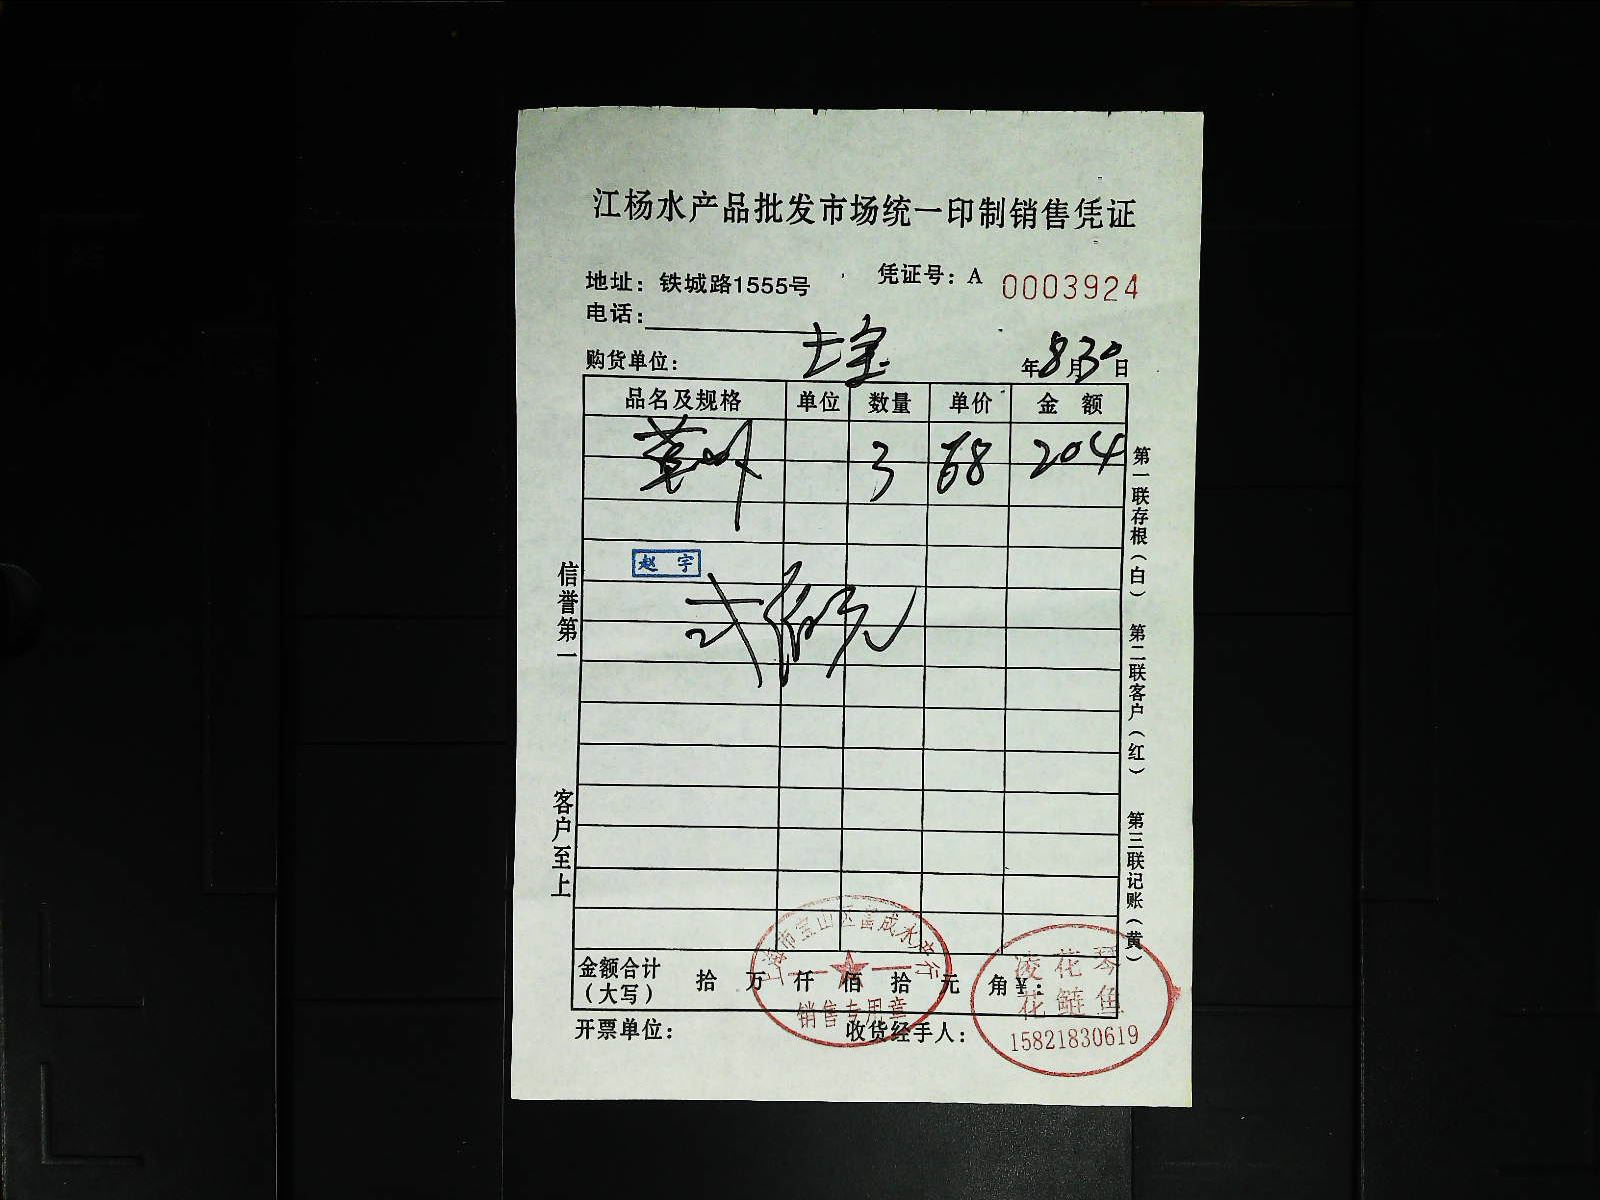 江杨水产品批发市场统一印制销售凭证
地址：铁城路1555号 凭证号：A 0003924
电话：
购货单位： 七宝 年8月30日
品名及规格 单位 数量 单价 金额
3 68 204
赵宇
弍佰元
信誉第一
客户至上
第一联存根（白）
第二联客户（红）
第三联记账（黄）
金额合计（大写） 拾 万 仟 佰 拾 元 角 ¥：
开票单位： 收货经手人：
销售专用章
凌花琴
花鲢鱼
15821830619